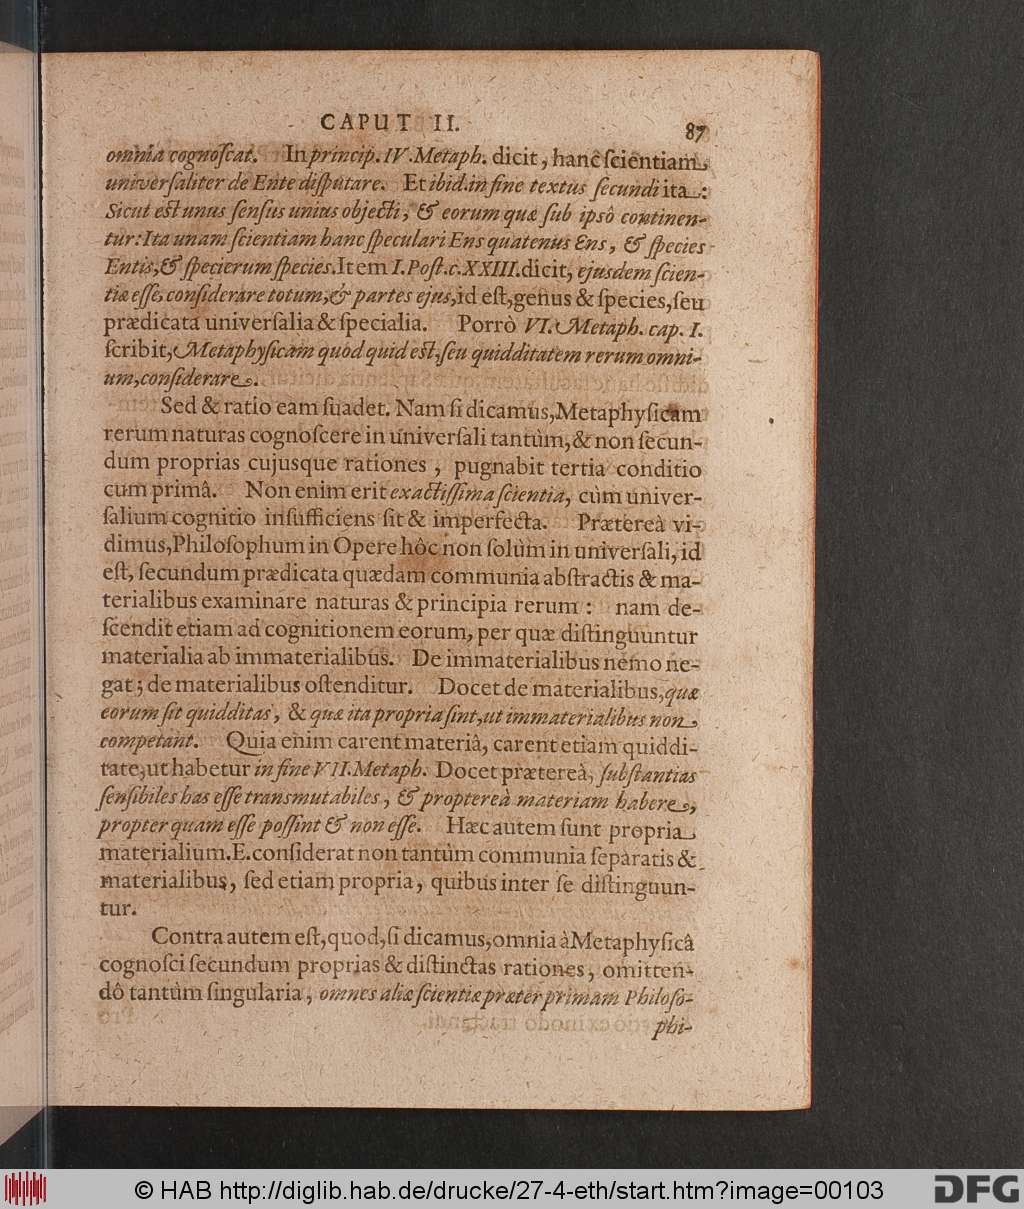 CAPUT II. 87
omnia cognoſcat. In princip. IV. Metaph. dicit, hanc ſcientiam
univerſaliter de Ente diſputare. Et ibid. in fine textus ſecundi ita:
Sicut eſt unus ſenſus unius objecti, & eorum quæ ſub ipsô continen-
tur: Ita unam ſcientiam hanc ſpeculari Ens quatenus Ens, & ſpecies
Entis, & ſpecierum ſpecies. Item I. Poſt. c. XXIII. dicit, ejusdem ſcien-
tiæ eſſe, conſiderare totum, & partes ejus, id eſt, genus & ſpecies, ſeu
prædicata univerſalia & ſpecialia. Porrò VI. Metaph. cap. I.
ſcribit, Metaphyſicam quòd quid eſt, ſeu quidditatem rerum omni-
um, conſiderare.
Sed & ratio eam ſuadet. Nam ſi dicamus, Metaphyſicam
rerum naturas cognoſcere in univerſali tantùm, & non ſecun-
dum proprias cujusque rationes, pugnabit tertia conditio
cum primâ. Non enim erit exactiſſima ſcientia, cùm univer-
ſalium cognitio inſufficiens ſit & imperfecta. Prætereà vi-
dimus, Philoſophum in Opere hôc non ſolùm in univerſali, id
eſt, ſecundum prædicata quædam communia abſtractis & ma-
terialibus examinare naturas & principia rerum: nam de-
ſcendit etiam ad cognitionem eorum, per quæ diſtinguuntur
materialia ab immaterialibus. De immaterialibus nemo ne-
gat; de materialibus oſtenditur. Docet de materialibus, quæ
eorum ſit quidditas, & quæ ita propria ſint, ut immaterialibus non
competant. Quia enim carent materiâ, carent etiam quiddi-
tate, ut habetur in fine VII. Metaph. Docet prætereà, ſubſtantias
ſenſibiles has eſſe transmutabiles, & proptereà materiam habere,
propter quam eſſe poſſint & non eſſe. Hæc autem ſunt propria
materialium. E. conſiderat non tantùm communia ſeparatis &
materialibus, ſed etiam propria, quibus inter ſe diſtinguun-
tur.
Contra autem eſt, quod, ſi dicamus, omnia à Metaphyſicâ
cognoſci ſecundum proprias & diſtinctas rationes, omitten-
dô tantùm ſingularia, omnes aliæ ſcientiæ præter primam Philoſo-
phi-
© HAB http://diglib.hab.de/drucke/27-4-eth/start.htm?image=00103
DFG